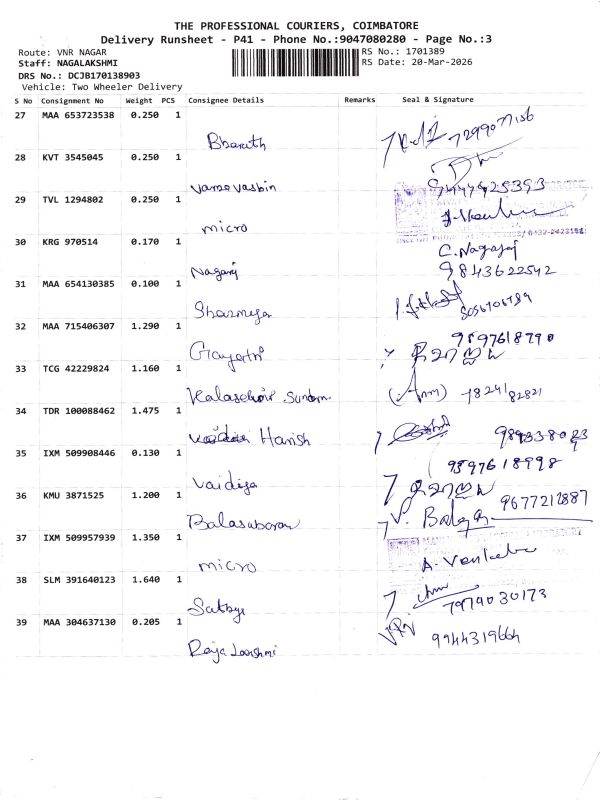 THE PROFESSIONAL COURIERS, COIMBATORE
Delivery Runsheet - P41 - Phone No.:9047080280 - Page No.:3
Route: VNR NAGAR
RS No.: 1701389
Staff: NAGALAKSHMI
RS Date: 20-Mar-2026
DRS No.: DCJB170138903
Vehicle: Two Wheeler Delivery
S No Consignment No Weight PCS Consignee Details Remarks Seal & Signature
27 MAA 653723538 0.250 1
Bharath 7299077156
28 KVT 3545045 0.250 1
9444925393
29 TVL 1294802 0.250 1
micro
30 KRG 970514 0.170 1
C. Nagaraj
Nagaraj 9843622542
31 MAA 654130385 0.100 1
Sharmeya
32 MAA 715406307 1.290 1
9597618790
Gayatri
33 TCG 42229824 1.160 1
Sundaram
34 TDR 100088462 1.475 1
Harish
35 IXM 509908446 0.130 1
9597618998
Vaidiya
36 KMU 3871525 1.200 1
9677212887
Balasubaran V. Balaga
37 IXM 509957939 1.350 1
micro A. Venkate
38 SLM 391640123 1.640 1
Sathya 7974030173
39 MAA 304637130 0.205 1
9944319664
Raja Lakshmi